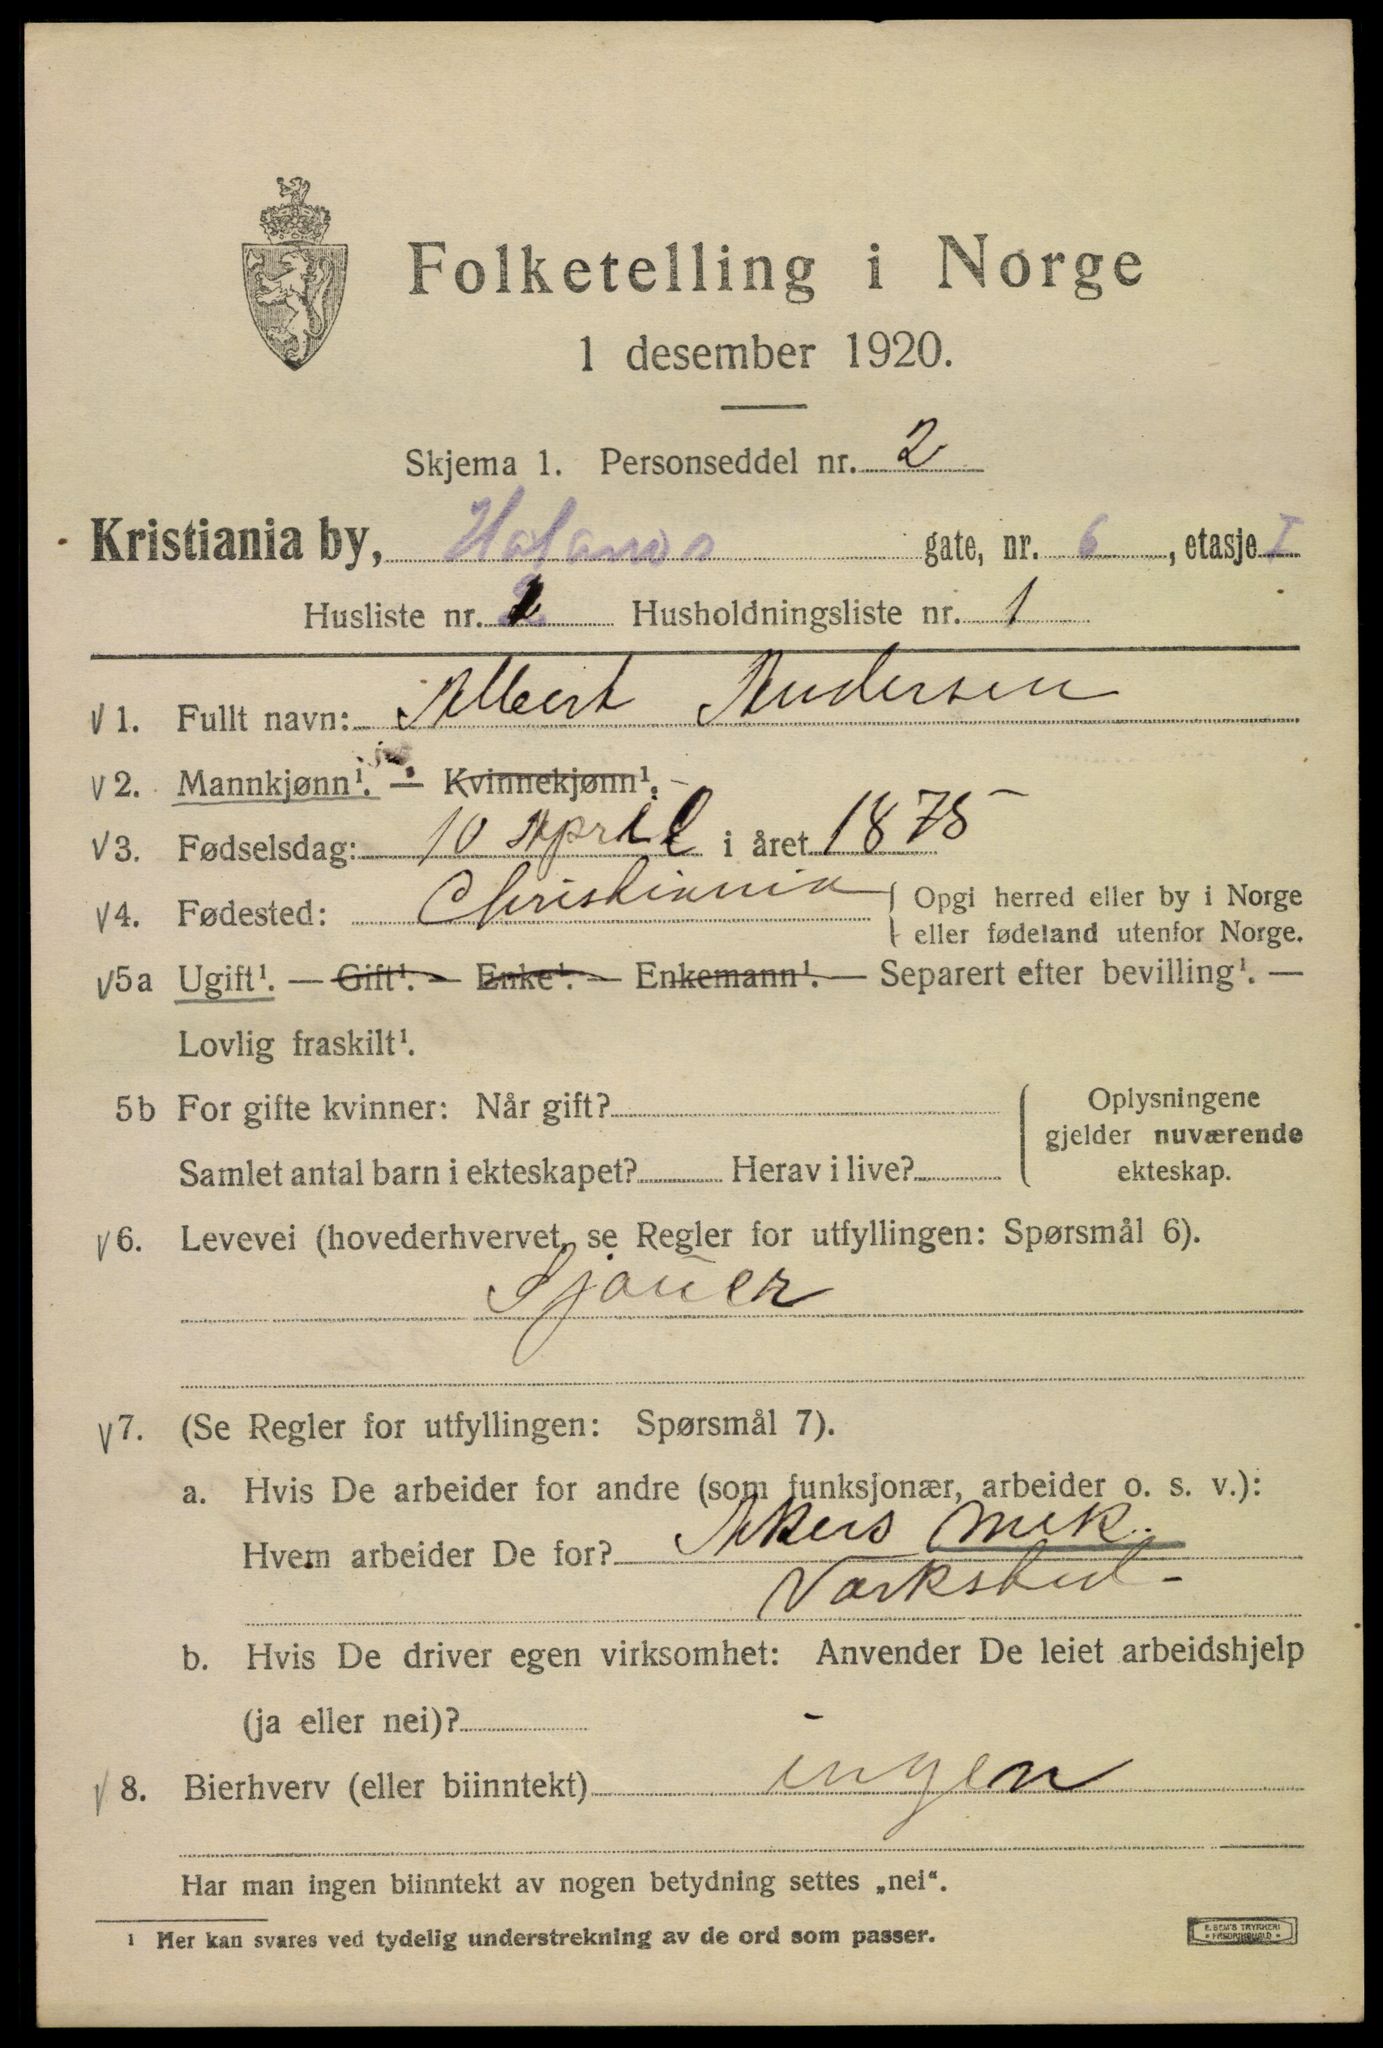 Folketelling i Norge
1 desember 1920.
Skjema 1. Personseddel nr. 2
Kristiania by, gate, nr. 6, etasje I
Husliste nr. 2 Husholdningsliste nr. 1
√ 1. Fullt navn: Albert Andersen
√ 2. Mannkjønn¹. — Kvinnekjønn¹. -
√ 3. Fødselsdag: 10 April i året 1875
√ 4. Fødested: Christiania { Opgi herred eller by i Norge
eller fødeland utenfor Norge.
√ 5a Ugift¹. — Gift¹. — Enke¹. — Enkemann¹. — Separert efter bevilling¹. —
Lovlig fraskilt¹.
5b For gifte kvinner: Når gift? { Oplysningene
gjelder nuværende
Samlet antal barn i ekteskapet? Herav i live? ekteskap.
√ 6. Levevei (hovederhvervet, se Regler for utfyllingen: Spørsmål 6).
Sjauer
√ 7. (Se Regler for utfyllingen: Spørsmål 7).
a. Hvis De arbeider for andre (som funksjonær, arbeider o. s. v.):
Hvem arbeider De for? Akers mek.
Værksted -
b. Hvis De driver egen virksomhet: Anvender De leiet arbeidshjelp
(ja eller nei)?
√ 8. Bierhverv (eller biinntekt) ingen
Har man ingen biinntekt av nogen betydning settes „nei“.
¹ Her kan svares ved tydelig understrekning av de ord som passer.
E. SEM'S TRYKKERI
* FREDRIKSHALD *